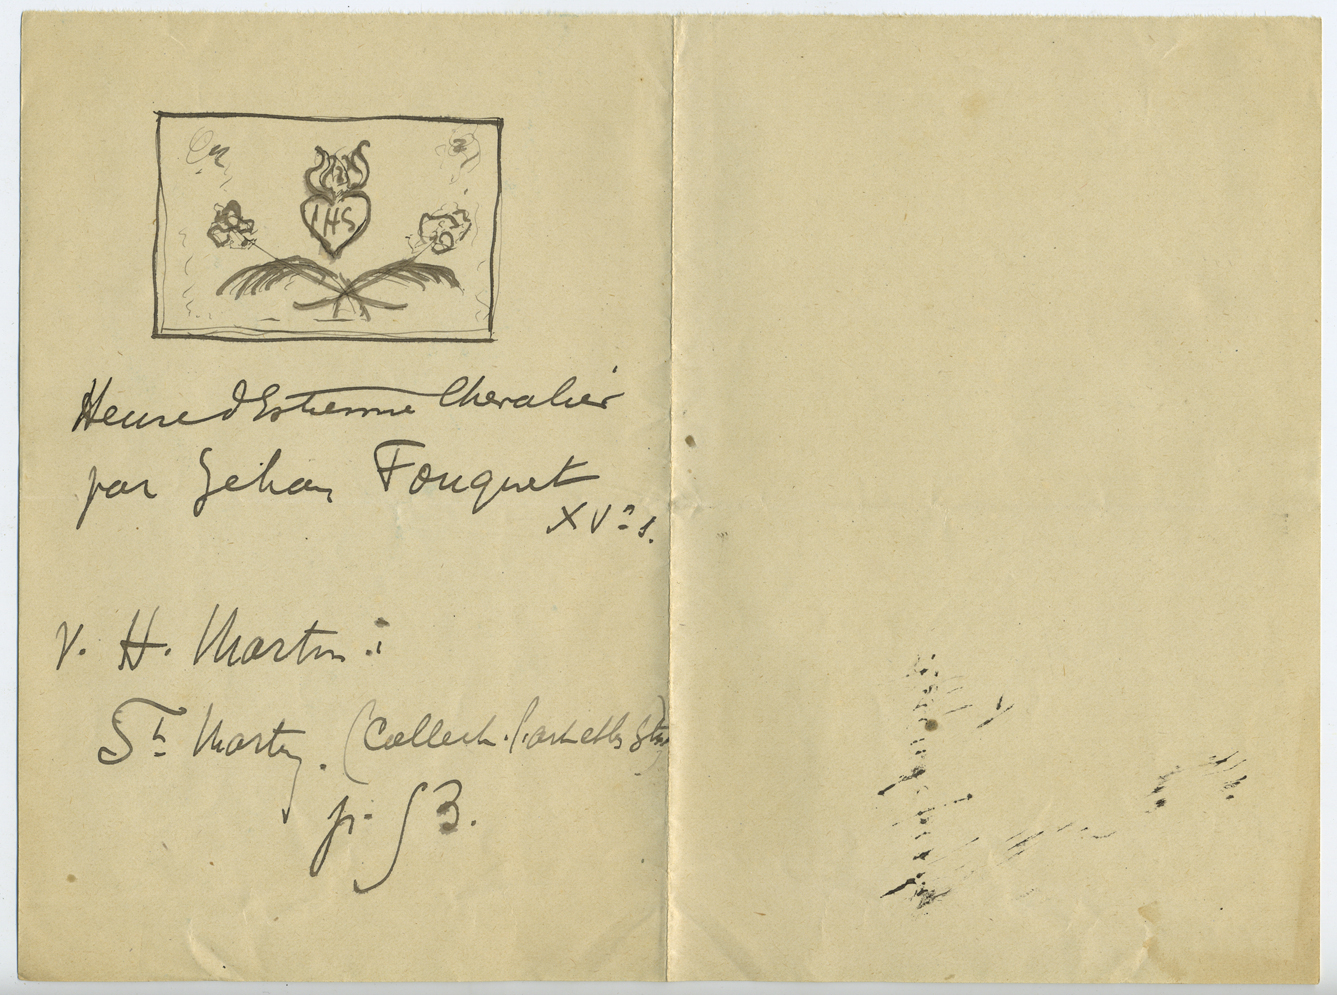 IHS
Heures d'Estienne Chevalier
par Jehan Fouquet
XVe s.
v. H. Martin :
St Martin. (Collect.
p. 53.